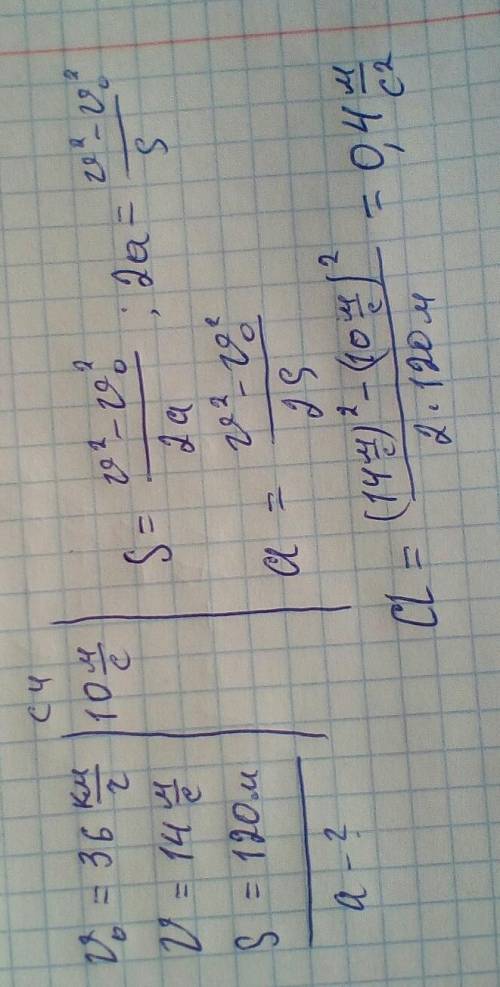 СИ
v₀ = 36 км/г | 10 м/с
v = 14 м/с
S = 120 м
a - ?
S = (v² - v₀²)/2a ; 2a = (v² - v₀²)/S
a = (v² - v₀²)/2S
a = ((14 м/с)² - (10 м/с)²)/(2 · 120 м) = 0,4 м/с²